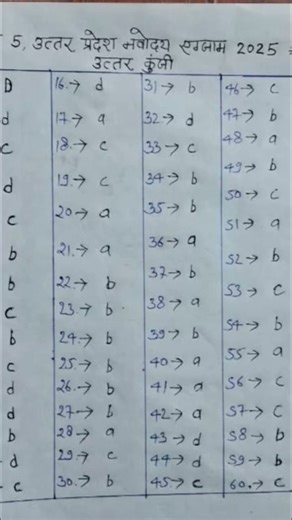 5, उत्तर प्रदेश नवोदय एग्जाम 2025
उत्तर कुंजी
D
d
c
d
c
b
b
c
b
c
d
d
b
d
c
16.→ d
17.→ a
18.→ c
19.→ c
20→ a
21.→ a
22.→ b
23.→ b
24.→ b
25.→ b
26.→ b
27→ b
28→ a
29.→ c
30.→ b
31→ b
32→ d
33→ c
34→ b
35→ b
36→ a
37→ b
38→ a
39→ b
40→ a
41→ a
42→ a
43→ d
44→ d
45→ c
46→ c
47→ b
48→ a
49→ b
50→ c
51→ a
52→ b
53→ c
54→ b
55→ a
56→ c
57→ c
58→ b
59→ b
60.→ c